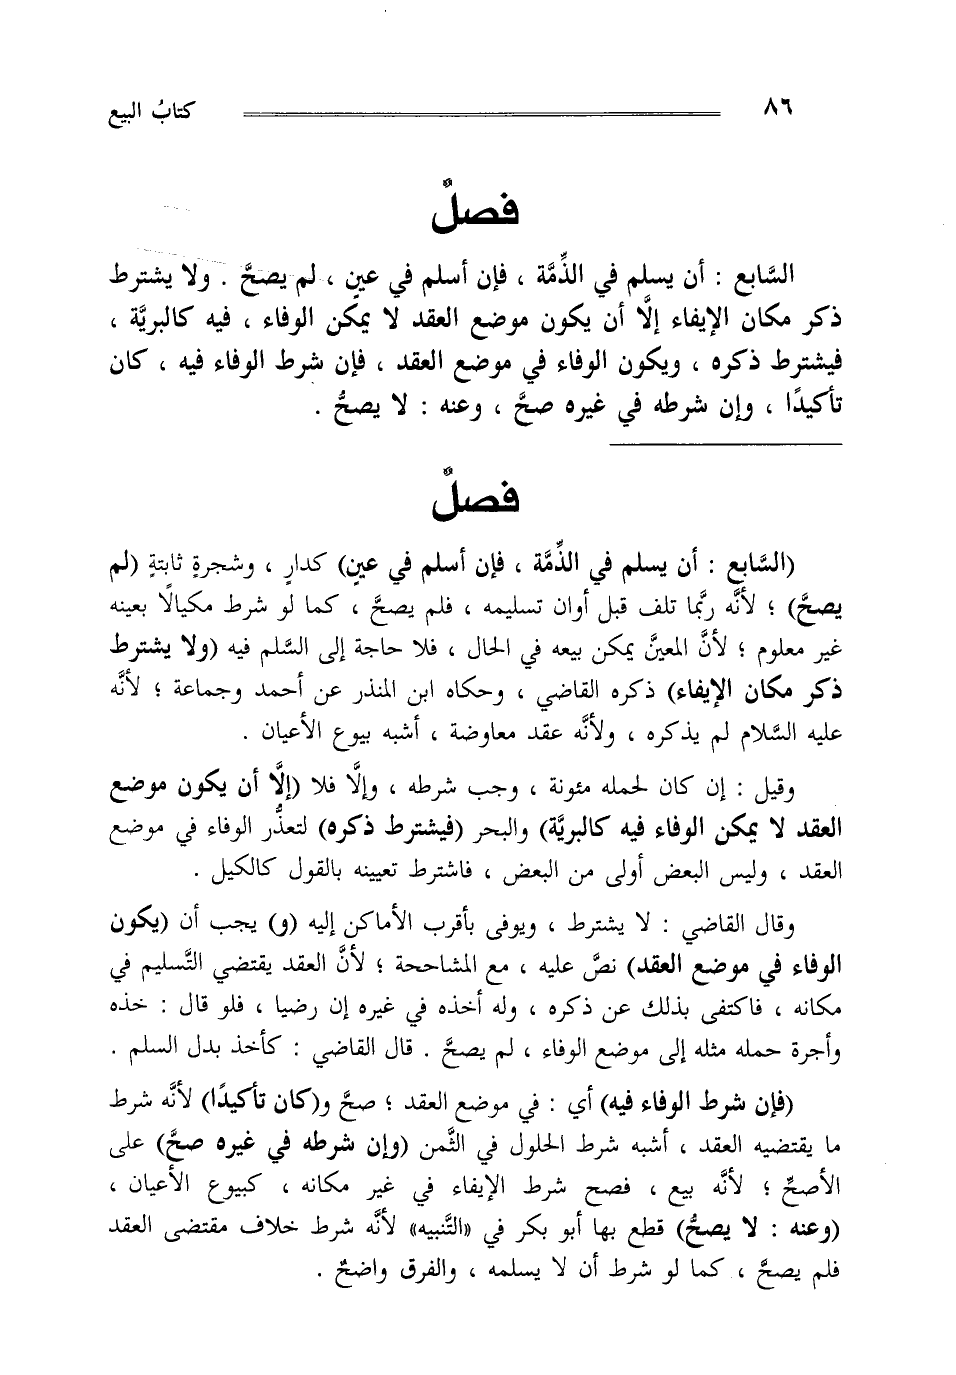 ٨٦ كتابُ البيع
فصلٌ
السَّابع : أن يسلم في الذِّمَّة ، فإن أسلم في عينٍ ، لم يصحَّ . ولا يشترط
ذكر مكان الإيفاء إلَّا أن يكون موضع العقد لا يمكن الوفاء ، فيه كالبريَّة ،
فيشترط ذكره ، ويكون الوفاء في موضع العقد ، فإن شرط الوفاء فيه ، كان
تأكيدًا ، وإن شرطه في غيره صحَّ ، وعنه : لا يصحُّ .
فصلٌ
(السَّابع : أن يسلم في الذِّمَّة ، فإن أسلم في عينٍ) كدارٍ ، وشجرةٍ ثابتةٍ (لم
يصحَّ) ؛ لأنَّه ربَّما تلف قبل أوان تسليمه ، فلم يصحَّ ، كما لو شرط مكيالًا بعينه
غير معلوم ؛ لأنَّ المعينَّ يمكن بيعه في الحال ، فلا حاجة إلى السَّلم فيه (ولا يشترط
ذكر مكان الإيفاء) ذكره القاضي ، وحكاه ابن المنذر عن أحمد وجماعة ؛ لأنَّه
عليه السَّلام لم يذكره ، ولأنَّه عقد معاوضة ، أشبه بيوع الأعيان .
وقيل : إن كان لحمله مئونة ، وجب شرطه ، وإلَّا فلا (إلَّا أن يكون موضع
العقد لا يمكن الوفاء فيه كالبريَّة) والبحر (فيشترط ذكره) لتعذُّر الوفاء في موضع
العقد ، وليس البعض أولى من البعض ، فاشترط تعيينه بالقول كالكيل .
وقال القاضي : لا يشترط ، ويوفى بأقرب الأماكن إليه (و) يجب أن (يكون
الوفاء في موضع العقد) نصَّ عليه ، مع المشاححة ؛ لأنَّ العقد يقتضي التَّسليم في
مكانه ، فاكتفى بذلك عن ذكره ، وله أخذه في غيره إن رضيا ، فلو قال : خذه
وأجرة حمله مثله إلى موضع الوفاء ، لم يصحَّ . قال القاضي : كأخذ بدل السلم .
(فإن شرط الوفاء فيه) أي : في موضع العقد ؛ صحَّ و(كان تأكيدًا) لأنَّه شرط
ما يقتضيه العقد ، أشبه شرط الحلول في الثَّمن (وإن شرطه في غيره صحَّ) على
الأصحِّ ؛ لأنَّه بيع ، فصح شرط الإيفاء في غير مكانه ، كبيوع الأعيان ،
(وعنه : لا يصحُّ) قطع بها أبو بكر في «التَّنبيه» لأنَّه شرط خلاف مقتضى العقد
فلم يصحَّ ، كما لو شرط أن لا يسلمه ، والفرق واضحٌ .